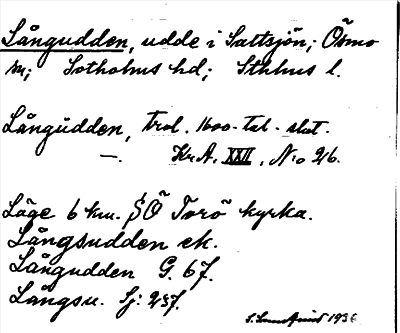 Långudden, udde i Saltsjön; Ösmo
sn; Sotholms hd; Sthlms l.
Långudden, trol. 1600-tal-slut.
—. Kr.A. XXII, No 26.
Läge 6 km. SÖ Torö kyrka.
Långsudden ek.
Långudden G. 67.
Långsu. Sj: 237.
1936